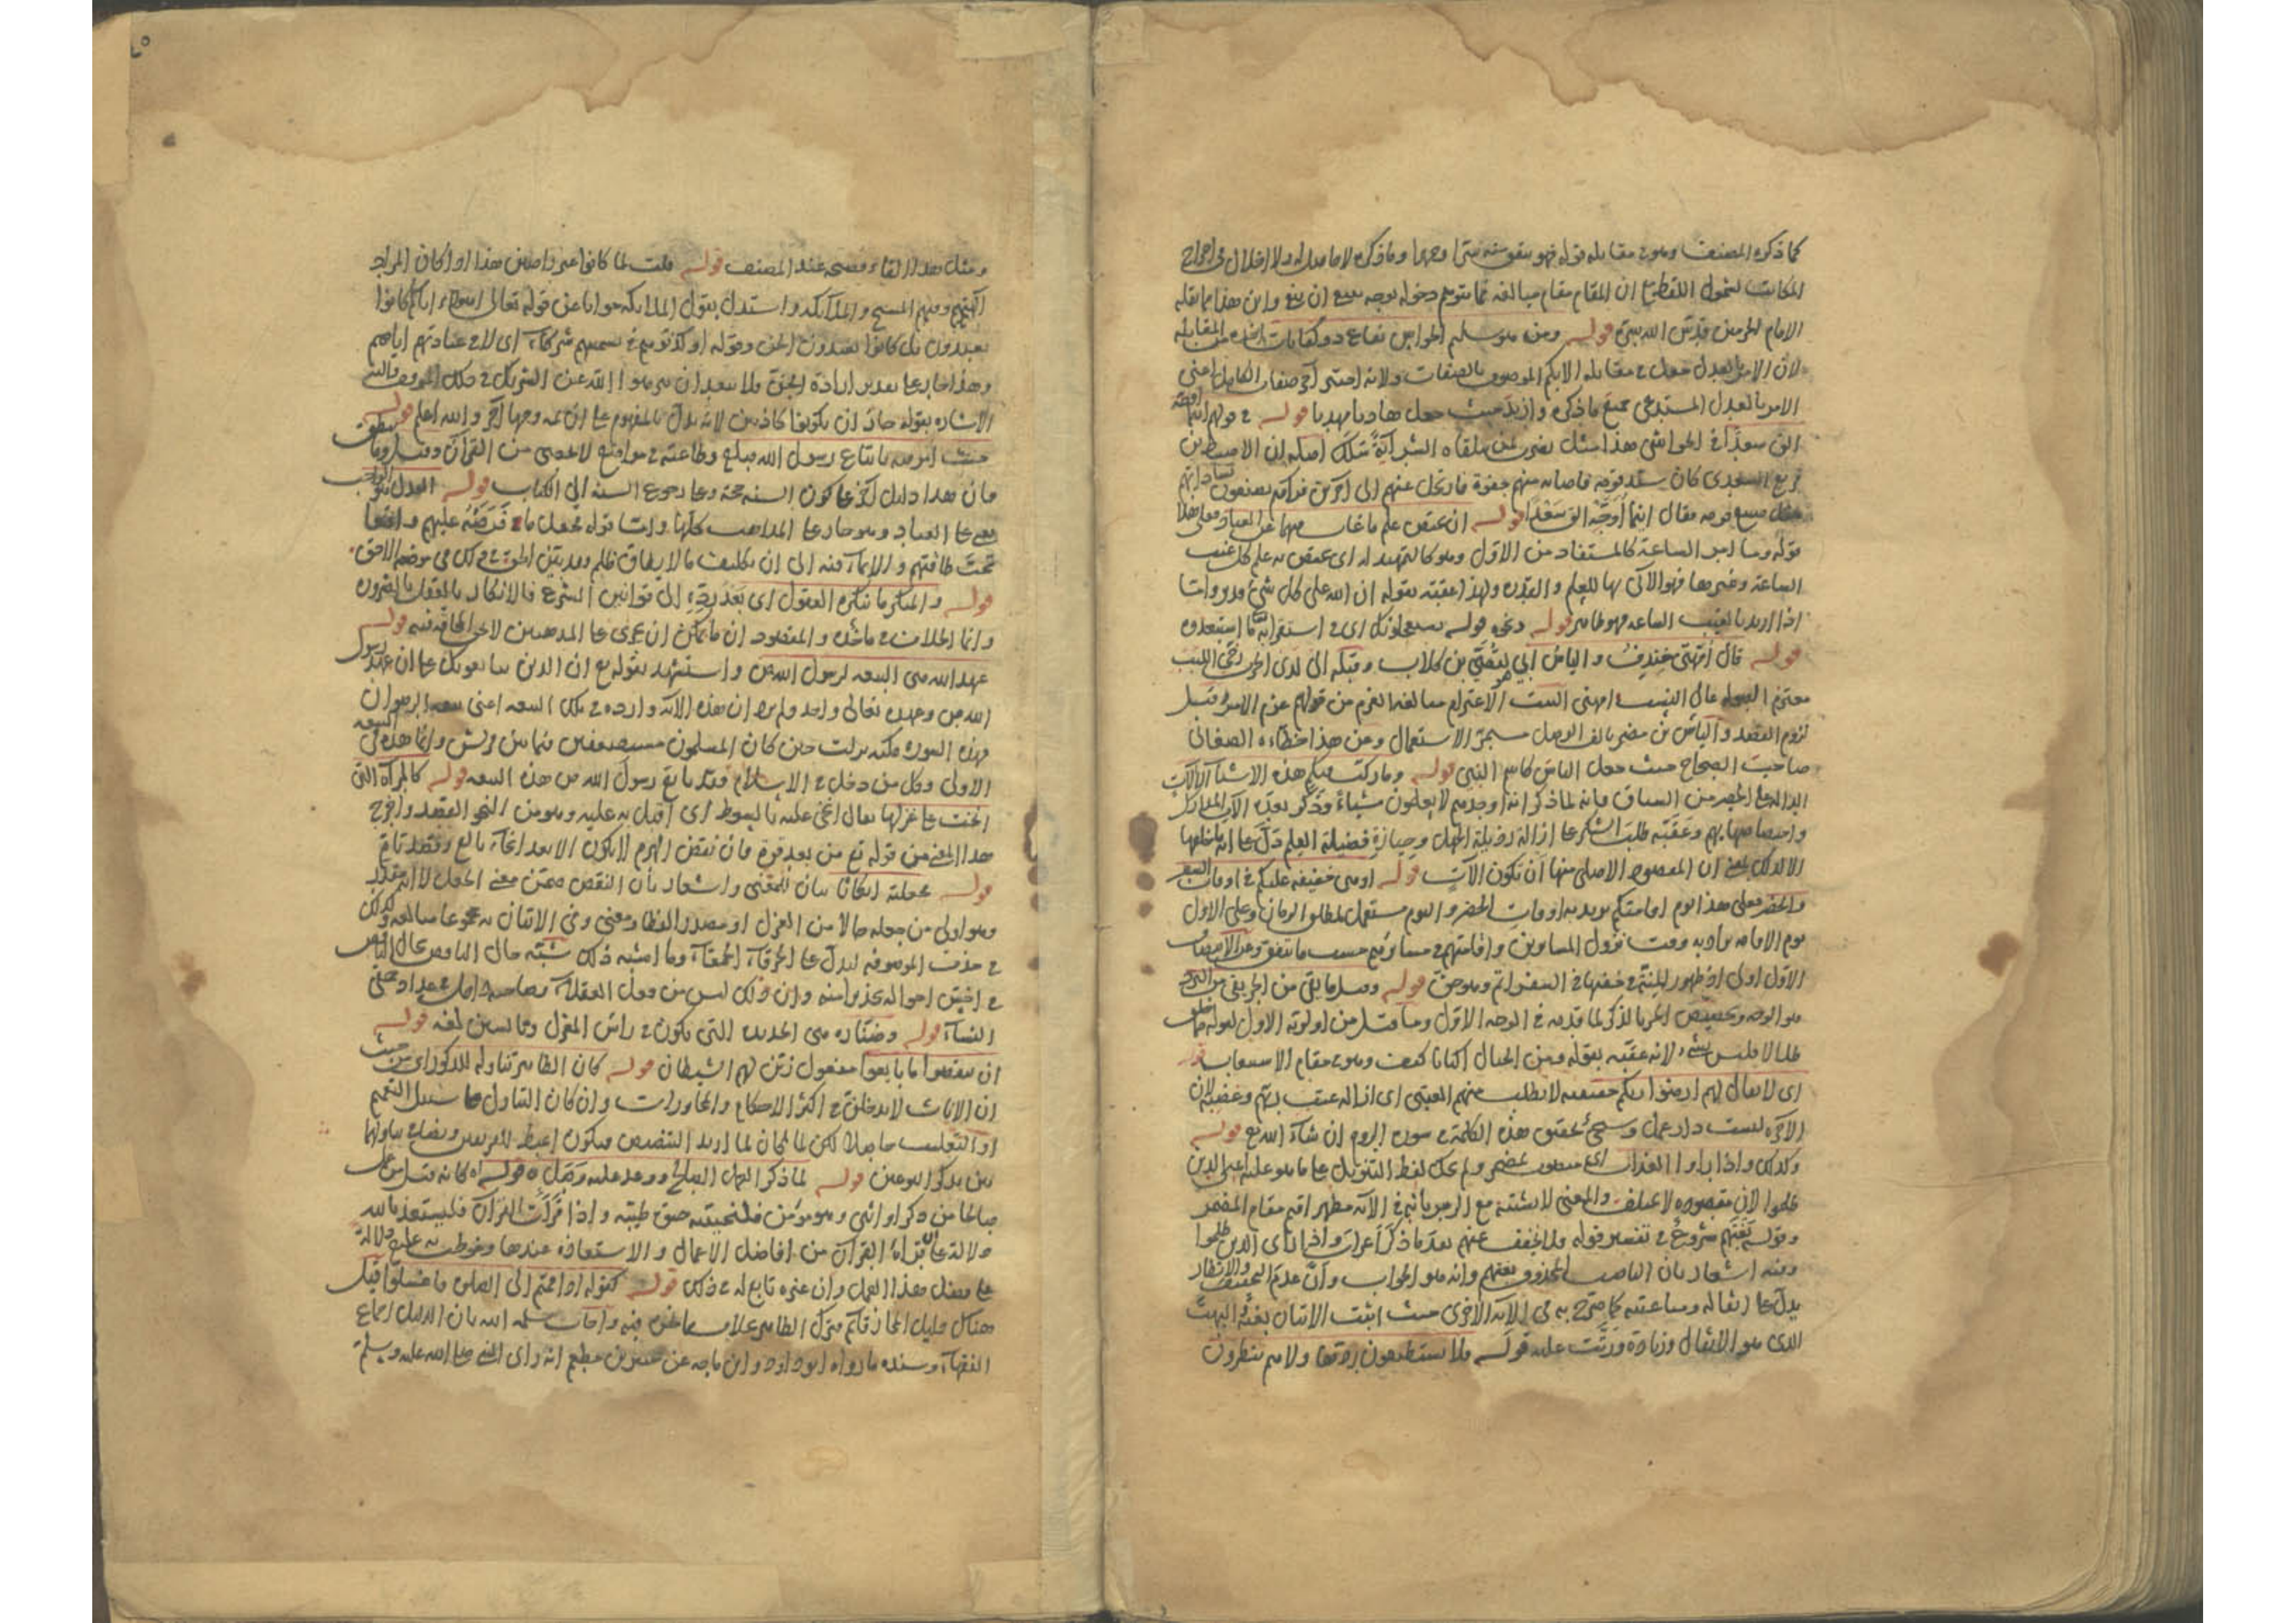 كما ذكره المصنف وهو في مقابلة قوله فهو ينفق منه سرا وجهرا وما ذكره
المكاتب لشمول اللفظ مع ان المقام مقام مبالغة مما يتوهم دخوله بوجه ينبغي ان ينفي وابن هذا مما نقله
الامام الحرمين قدس الله سره قوله ومن هو سليم الحواس نفاع ذو كفايات
لان الامر بالعدل جعل في مقابله الابكم الموصوف بالصفات ولانه اخر صفات الكامل اعني
الامر بالعدل المستدعي جميع ما ذكره وازيد حيث جعل هاديا مهديا قوله في قولهم اينما اوجه
الق سعدا في الحواشي هذا مثل يضرب لمن يلقاه الشر اية سلك اصله ان الاضبط بن
قريع السعدي كان سيد قومه فاصابه منهم جفوة فارتحل عنهم الى اخرين فرآهم يصنعون
قومه فقال اينما اوجه الق سعدا قوله ان يختص علم ما غاب فيهما عن العباد فعلى هذا
قوله وما امر الساعة كالمستفاد من الاول وهو كالتمهيد له اي يختص به علم كل غيب
الساعة وغيرها فهو الآتي بها للعلم والقدرة ولهذا عقبه بقوله ان الله على كل شيء قدير واما
اذا اريد بالغيب الساعة فهو ظاهر قوله ونحوه قوله يستعجلونك اي في استقرابه ما استبعدوه
قوله قال امهتي خندف والياس ابي لقصي بن كلاب وقبله اني لدى الحرب رخي اللبب
معتزم الصولة عالي النسب امهتي البيت الاعتزام مبالغة العزم من قولهم عزم الامر وقيل
لزوم القصد والياس بن مضر بالف الوصل مستمر الاستعمال ومن هذا خطاءه الصغاني
صاحب الصحاح حيث جعل الياس كاسم النبي قوله وما ركب فيكم هذه الاشياء الا آلات
الدالة على الحصر من السياق فانه لما ذكر انه اوجدهم لا يعلمون شيئا وذكر بعده
واختصاصها بهم وعقبه طلب الشكر على ازالة رذيلة الجهل وحيازة فضيلة العلم دل على انه ما خلقها
الا لذلك يعني ان المقصود الاصلي منها ان تكون الآت قوله او هي خفيفة عليكم في اوقات السفر
والحضر فعلى هذا يوم اقامتكم يريد به اوقات الحضر واليوم مستعمل لمطلق الزمان وعلى الاول
يوم الاقامة يراد به وقت نزول المسافرين واقامتهم في مسايرهم حسب ما يتفق
الاول اولى اذ ظهور المنة في خفتها في السفر اتم وهو حق قوله وقيل ما يقي من الحر يقي من البرد
هو الوجه وتخصيص الحر بالذكر لما قدمه في الوجه الاول وما قيل من اولوية الاول لقوله مما خلق
ظلالا فليس بشيء لانه عقبه بقوله ومن الجبال اكنانا كيف وهو في مقام الاستيعاب
اي لا يقال لهم ارضوا ربكم حقيقة لا يطلب منهم العتبى اي ازالة عتب ربهم وغضبه لان
الآخرة ليست دار عمل وسيجيء تحقيق هذه الكلمة في سورة الروم ان شاء الله تع قوله
وكذلك واذا رأوا العذاب اي منصوب بمضمر ولم يحك لفظ التنزيل على ما هو عليه اعني الذين
ظلموا لان مقصوده لا يختلف والمعنى لا يشتبه مع الرمز بانه في الآية مظهر اقيم مقام المضمر
وقوله بغتهم شروع في تفسير قوله فلا يخفف عنهم بعد ما ذكر اعراب واذا رأى الذين ظلموا
ومنه اشعار بان الناصب المحذوف بغتهم وانه هو الجواب وان عدم التخفيف والانظار
يدل على اثقاله ومباغتته كما صرح به في الآية الاخرى حيث اثبت الاتيان بغتة
الذي هو الاثقال وزيادة ورتبت عليه قوله فلا يستطيعون ردها ولا هم ينظرون
ومثل هذا الفاء فصيحة عند المصنف قوله قلت لما كانوا غير راضين هذا اذا كان المراد
آلهتهم ومنهم المسيح والملائكة واستدل بقول الملائكة جوابا عن قوله تعالى اهؤلاء اياكم كانوا
يعبدون بل كانوا يعبدون الجن وقوله او كذبوهم في تسميتهم شركاء اي لا في عبادتهم اياهم
وهذا جار على تقدير ارادة الجن ولا يبعد ان ينزهوا الله عن الشريك في ذلك الموقف واليه
الاشارة بقوله جاز ان يكونوا كاذبين لانه يدل بالمفهوم على ان ثمه وجها آخر والله اعلم قوله
حيث امر فيه باتباع رسول الله صلع وطاعته في مواضع لا تحصى من القرآن وقيل وما ينطق
فان هذا دليل آخر على كون السنة حجة وعلى رجوع السنة الى الكتاب قوله العدل هو الواجب
يعني على العباد وهو جار على المذاهب كلها واما قوله فجعل ما فرضه عليهم واقعا
تحت طاقتهم والايماء فيه الى ان تكليف ما لا يطاق ظلم وقد يتبين الحق في ذلك في موضعه الاحق
قوله والمنكر ما تنكره العقول اي بعد رده الى قوانين الشرع فالانكار بالعقل بالضرورة
وانما الخلاف في ماخذه والمقصود ان ما يمكن ان يجري على المذهبين لا يحق الحاقه قوله
عهد الله هي البيعة لرسول الله ص واستشهد بقوله تع ان الذين يبايعونك على ان عهد رسول
الله ص وعهده تعالى واحد ولم يرد ان هذه الآية واردة في تلك البيعة اعني بيعة الرضوان
فهذه السورة مكية نزلت حين كان المسلمون مستضعفين فيما بين قريش وانما هذه في البيعة
الاولى وكل من دخل في الاسلام فقد بايع رسول الله ص هذه البيعة قوله كالمرأة التي
انحت على غزلها يقال انحى عليه بالسوط اي اقبل به عليه وهو من النحو القصد واخرج
هذا المعنى من قوله تع من بعد قوة فان نقض المبرم لا يكون الا بعد انحاء بالغ وقصد تام
قوله فجعلته انكاثا بيان للمعنى واشعار بان النقض ضمن معنى الجعل لا انه مقدر
وهو اولى من جعله حالا من الغزل او مصدرا لفظا ومعنى وفي الاتيان به مجموعا مبالغة وكذلك
في حذف الموصوفة ليدل على الخرقاء الحمقاء وما اشبه ذلك شبه حال الناقض بحال الناقض
في اخس احواله تحذيرا منه وان ذلك ليس من فعل العقلاء وصاحبه داخل في عداد حمقى
النساء قوله وصنارة هي الحديدة التي تكون في راس المغزل وهي بالسين لغة قوله
ان تنقضوا ما بايعوا مفعول زين لهم الشيطان قوله كان الظاهر تناوله للذكور اي من حيث
ان الاناث لا يدخلن في اكثر الاحكام والمحاورات وان كان التناول على سبيل التعميم
او التغليب حاصلا لكن لما كان لما اريد التنصيص ليكون اغبط للفريقين
بين يذكر النوعين قوله لما ذكر العمل الصالح ووعد عليه وصل قوله كانه قيل من عمل
صالحا من ذكر او انثى وهو مؤمن فلنحيينه حيوة طيبة واذا قرأت القرآن فليستعذ بالله
دلالة على ان قراءة القرآن من افاضل الاعمال والاستعاذة عندها وخوطب به علية دلالة
على فضل هذا العمل وان غيره تابع له في ذلك قوله كقوله اذا قمتم الى الصلوة فاغسلوا قيل
هناك دليل المجاز قائم فترك الظاهر بخلاف ما نحن فيه واجاب سلمه الله بان الدليل اجماع
الفقهاء وسنده ما رواه ابو داود وابن ماجه عن جبير بن مطعم انه رأى النبي صلى الله عليه وسلم